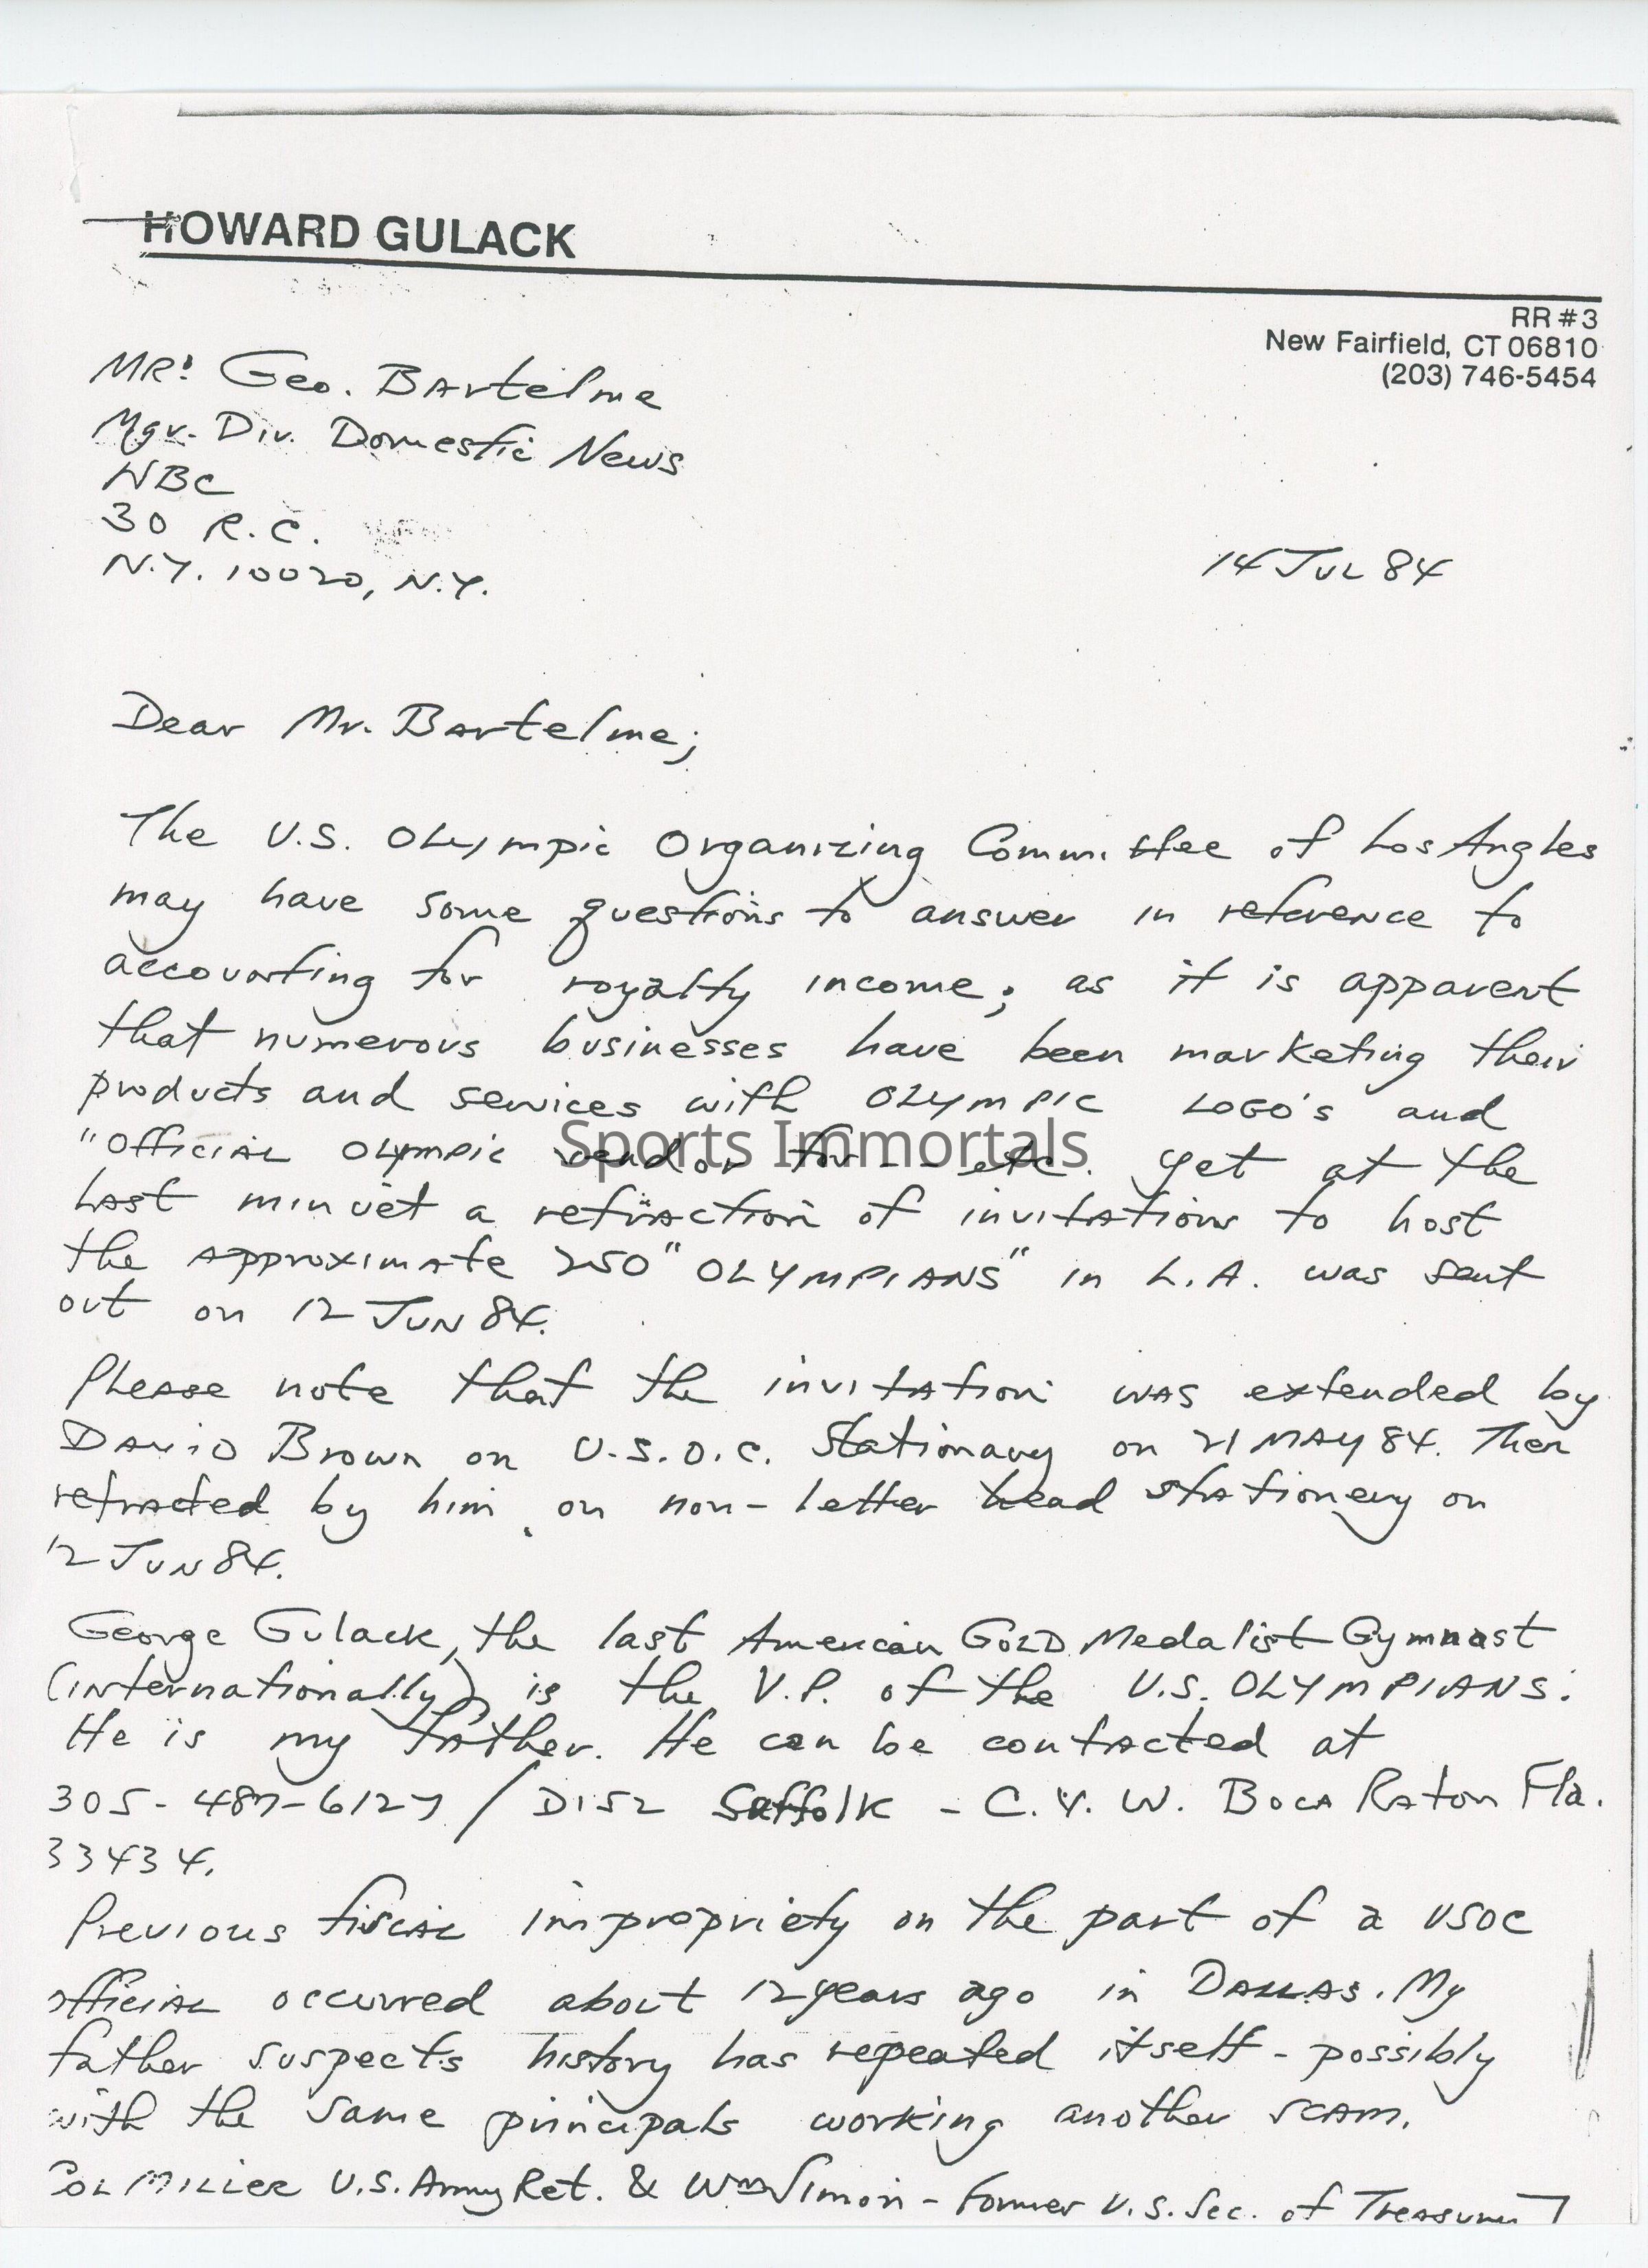 HOWARD GULACK
RR #3
New Fairfield, CT 06810
(203) 746-5454
MR. Geo. Bartelme
Mgr. Div. Domestic News
NBC
30 R.C.
N.Y. 10020, N.Y.
14 JUL 84
Dear Mr. Bartelme;
The U.S. Olympic Organizing Committee of Los Angles
may have some questions to answer in reference to
accounting for royalty income; as it is apparent
that numerous businesses have been marketing their
products and services with OLYMPIC LOGO's and
"Official Olympic vendor for -- etc. yet at the
Last minuet a retraction of invitations to host
the approximate 250 "OLYMPIANS" in L.A. was sent
out on 12 JUN 84.
Please note that the invitation was extended by
David Brown on U.S.O.C. Stationary on 21 MAY 84. Then
retracted by him on non-letter head stationery on
12 JUN 84.
George Gulack, the last American GOLD Medalist Gymnast
(internationally) is the V.P. of the U.S. OLYMPIANS.
He is my father. He can be contacted at
305-487-6127 / D152 Suffolk - C.V.W. Boca Raton Fla.
33434.
Previous fiscal impropriety on the part of a USOC
official occurred about 12 years ago in Dallas. My
father suspects history has repeated itself - possibly
with the same principals working another scam.
Col Miller U.S. Army Ret. & Wm Simon - former U.S. Sec. of Treasury
Sports Immortals